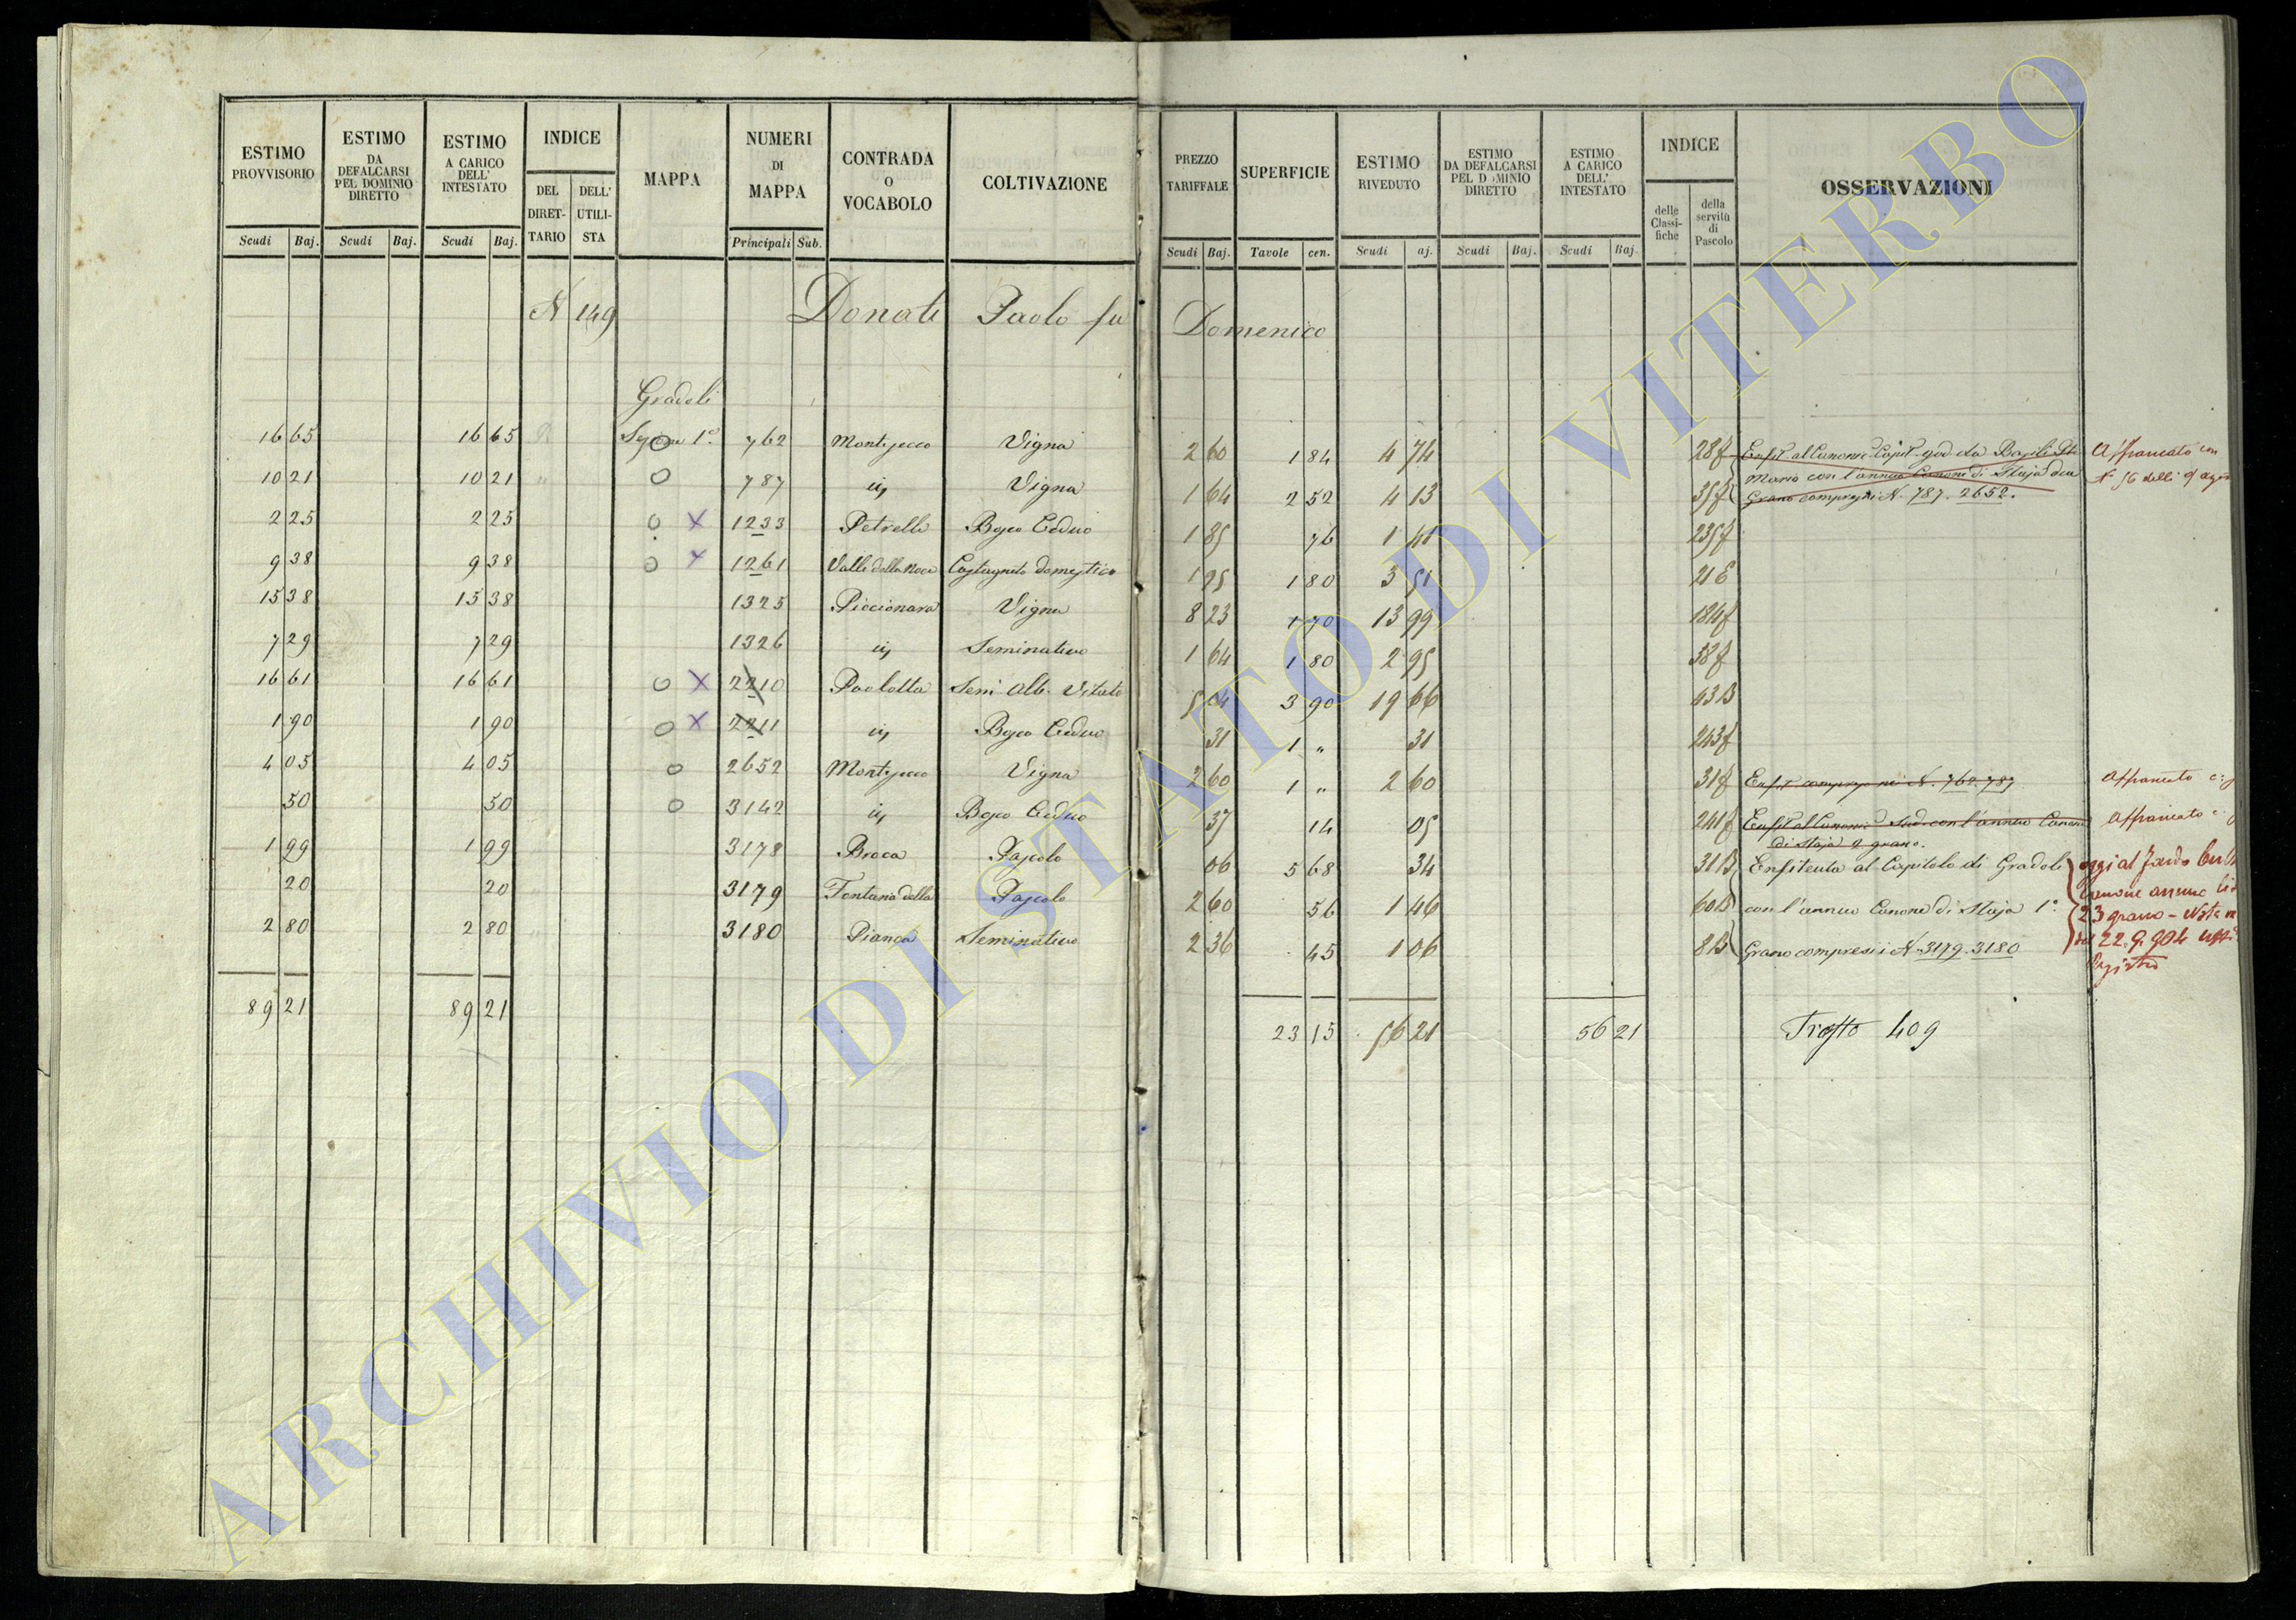 ESTIMO PROVVISORIO | ESTIMO DA DEFALCARSI PEL DOMINIO DIRETTO | ESTIMO A CARICO DELL' INTESTATO | INDICE | MAPPA | NUMERI DI MAPPA | CONTRADA O VOCABOLO | COLTIVAZIONE | PREZZO TARIFFALE | SUPERFICIE | ESTIMO RIVEDUTO | ESTIMO DA DEFALCARSI PEL DOMINIO DIRETTO | ESTIMO A CARICO DELL' INTESTATO | INDICE | OSSERVAZIONI
DEL DIRETTARIO | DELL' UTILISTA | delle Classifiche | della servitù di Pascolo
Scudi | Baj. | Scudi | Baj. | Scudi | Baj. | Principali | Sub. | Scudi | Baj. | Tavole | cen. | Scudi | aj. | Scudi | Baj. | Scudi | Baj.
N 149 Donati Paolo fu Domenico
Gradoli
16 65 | 16 65 | 1° | 762 | Vigna | 2 60 | 1 84 | 4 74 | 28 | Affrancato con
10 21 | 10 21 | 787 | Vigna | 1 64 | 2 52 | 4 13 | 35 | Mario con l'annuo Canone di Staja
Grano compresi i N. 787. 2652.
2 25 | 2 25 | 1233 | Bosco Ceduo | 1 85 | 76 | 1 41 | 235
9 38 | 9 38 | 1261 | Valle della Noce | Castagneto domestico | 1 95 | 1 80 | 3 51 | 21
15 38 | 15 38 | 1325 | Piccionara | Vigna | 8 23 | 1 70 | 13 99 | 184
7 29 | 7 29 | 1326 | Seminativo | 1 64 | 1 80 | 2 95 | 38
16 61 | 16 61 | 2210 | Paoletta | Semi Alb. Vitato | 5 04 | 3 90 | 19 66 | 43
1 90 | 1 90 | 2211 | Bosco Ceduo | 31 | 1 " | 31 | 243
4 05 | 4 05 | 2652 | Vigna | 2 60 | 1 " | 2 60 | 31 | 762. 787 | Affrancato
50 | 50 | 3142 | Bosco Ceduo | 37 | 14 | 05 | 241 | con l'annuo Canone | Affrancato
di Staja 2 grano.
1 99 | 1 99 | 3178 | Broca | Pascolo | 06 | 5 68 | 34 | 31 | Enfiteuta al Capitolo di Gradoli | oggi al Fondo
20 | 20 | 3179 | Fontana della | Pascolo | 2 60 | 56 | 1 46 | 60 | con l'annuo Canone di Staja 1° | Canone annuo
23 grano - Nota
2 80 | 2 80 | 3180 | Pianca | Seminativo | 2 36 | 45 | 1 06 | 8 | Grano compresi i N. 3179. 3180 | 22.9.904
Registro
89 21 | 89 21 | 23 15 | 56 21 | 56 21 | 409
ARCHIVIO DI STATO DI VITERBO